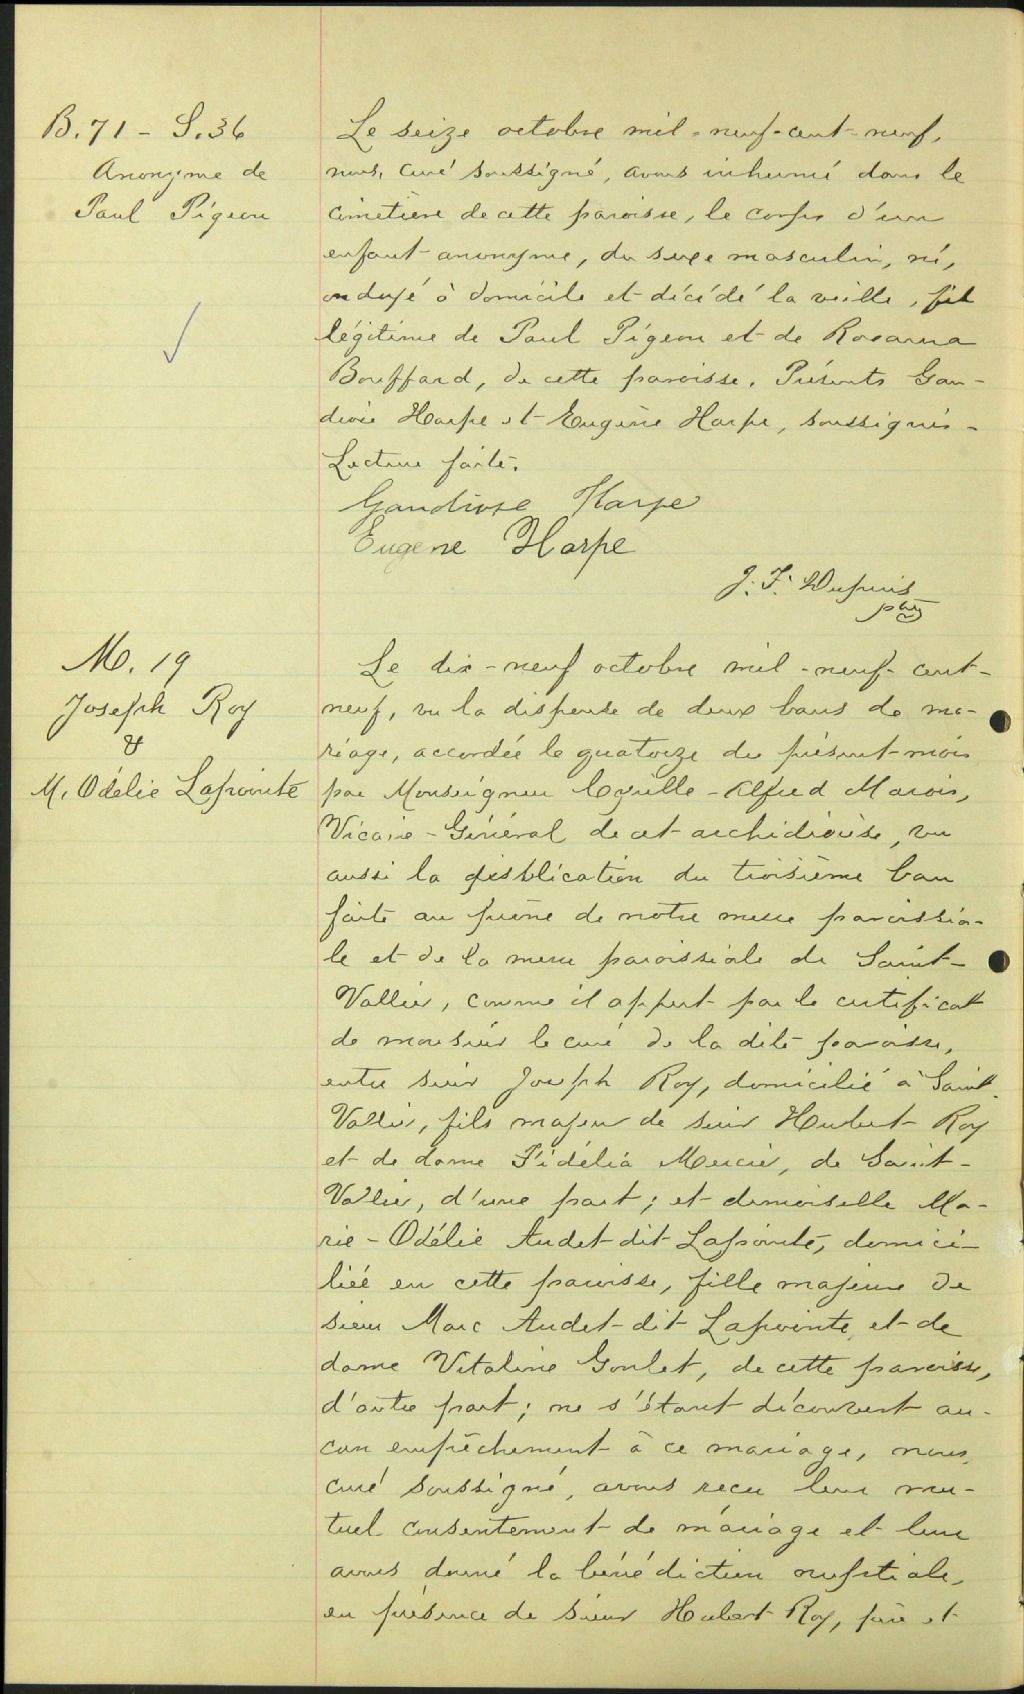 B. 71 - S. 36
Anonyme de
Paul Pigeon
Le seize octobre mil-neuf-cent-neuf,
nous, curé soussigné, avons inhumé dans le
cimetière de cette paroisse, le corps d'un
enfant anonyme, du sexe masculin, né,
ondoyé à domicile et décédé la veille, fils
légitime de Paul Pigeon et de Rosanna
Bouffard, de cette paroisse. Présents Gau-
diose Harpe et Eugène Harpe, soussignés -
Lecture faite.
Gaudiose Harpe
Eugene Harpe
J. F. Dupuis
ptre
M. 19
Joseph Roy
&
M. Odélie Lapointe
Le dix-neuf octobre mil-neuf-cent-
neuf, vu la dispense de deux bans de ma-
riage, accordée le quatorze du présent mois
par Monseigneur Cyrille-Alfred Marois,
Vicaire-Général de cet archidiocèse, vu
aussi la publication du troisième ban
faite au prône de notre messe paroissia-
le et de la messe paroissiale de Saint-
Vallier, comme il appert par le certificat
de monsieur le curé de la dite paroisse,
entre sieur Joseph Roy, domicilié à Saint-
Vallier, fils majeur de sieur Hubert Roy
et de dame Fidélia Mercier, de Saint-
Vallier, d'une part; et demoiselle Ma-
rie-Odélie Audet dit Lapointe, domici-
liée en cette paroisse, fille majeure de
sieur Marc Audet dit Lapointe et de
dame Vitaline Goulet, de cette paroisse,
d'autre part; ne s'étant découvert au-
cun empêchement à ce mariage, nous,
curé soussigné, avons reçu leur mu-
tuel consentement de mariage et leur
avons donné la bénédiction nuptiale,
en présence de sieur Hubert Roy, père et